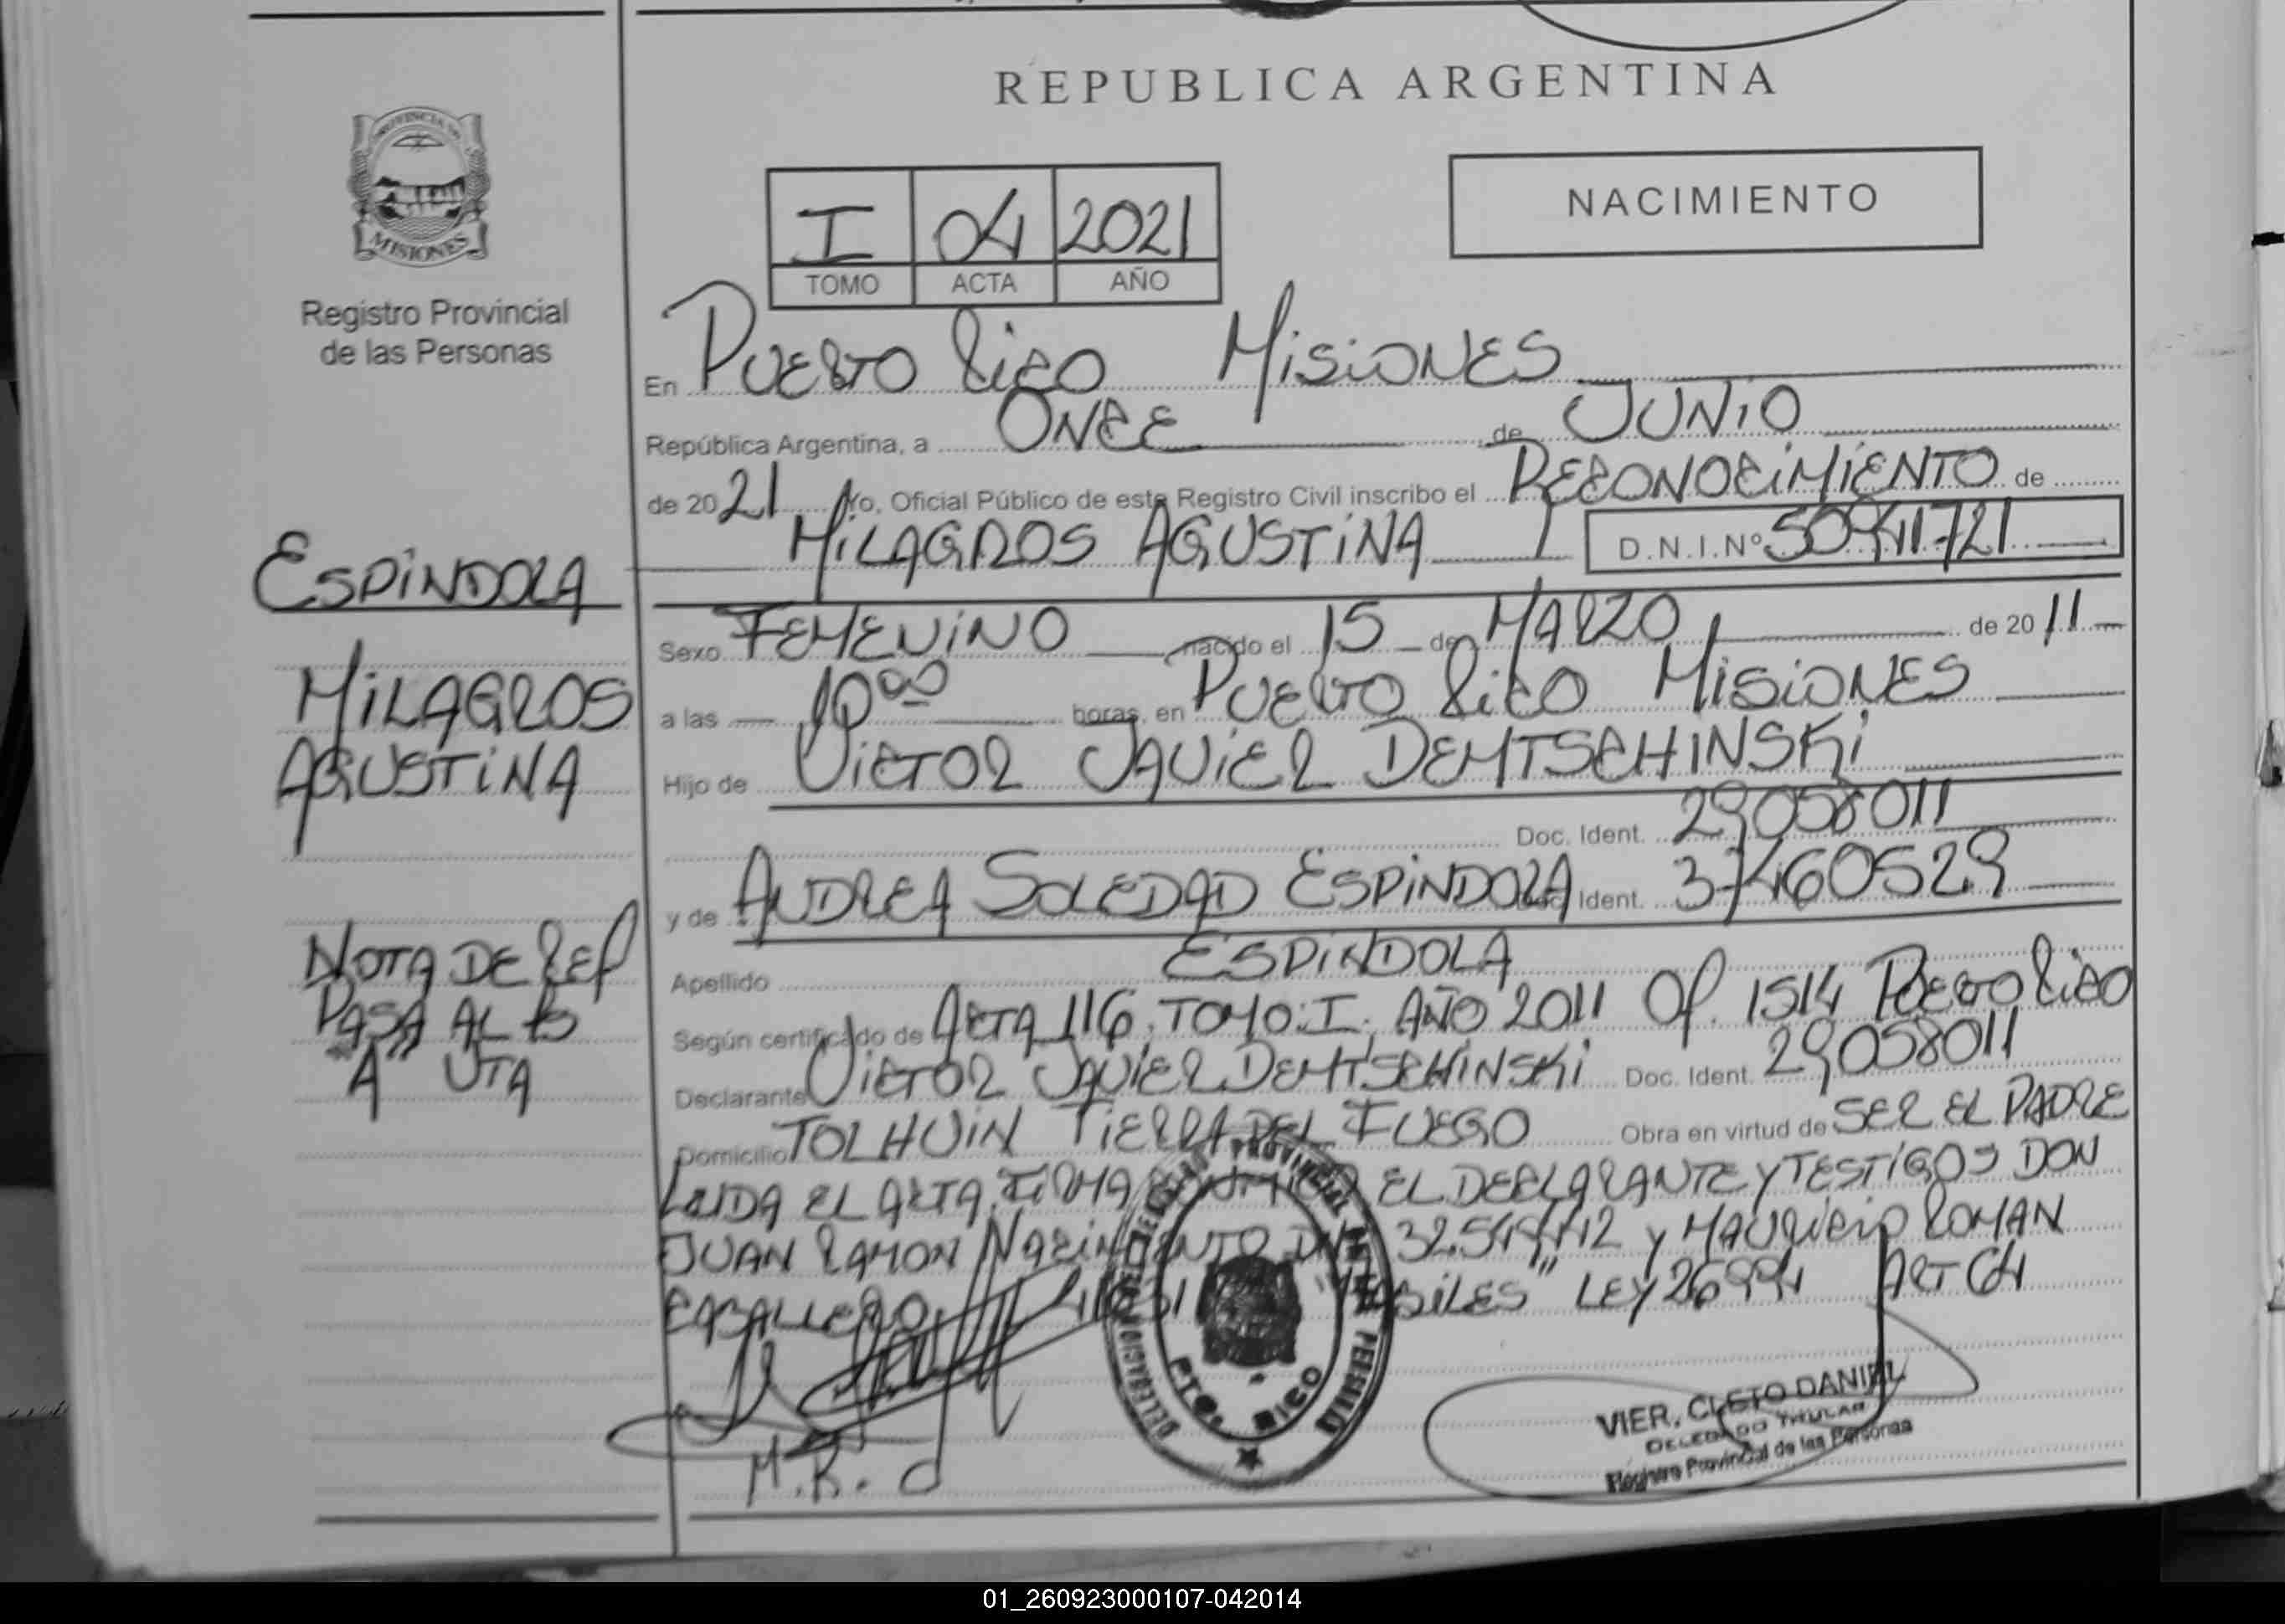 REPUBLICA ARGENTINA
PROVINCIA DE
MISIONES
Registro Provincial
de las Personas
NACIMIENTO
I 04 2021
TOMO ACTA AÑO
En PUERTO RICO MISIONES
República Argentina, a ONCE de JUNIO
de 2021 Yo, Oficial Público de este Registro Civil inscribo el RECONOCIMIENTO de
MILAGROS AGUSTINA D.N.I.Nº 50941721
ESPINDOLA
MILAGROS
AGUSTINA
Sexo FEMENINO nacido el 15 de MARZO de 2011
a las 10⁰⁰ horas, en PUERTO RICO MISIONES
Hijo de VICTOR JAVIER DEMTSCHINSKI
Doc. Ident. 29058011
y de ANDREA SOLEDAD ESPINDOLA Doc. Ident. 37460529
Apellido ESPINDOLA
NOTA DE REF
PASA AL
"A" VTA
Según certificado de ACTA 116. TOMO: I. AÑO 2011 Of. 1514 PUERTO RICO
Declarante VICTOR JAVIER DEMTSCHINSKI Doc. Ident. 29058011
Domicilio TOLHUIN TIERRA DEL FUEGO Obra en virtud de SER EL PADRE
LEIDA EL ACTA, FIRMA EL DECLARANTE Y TESTIGOS DON
JUAN RAMON y MAURICIO ROMAN
CABALLERO "HABILES" LEY 26994 ART 64
M.R. C
PTO. RICO
VIER, CLETO DANIEL
DELEGADO TITULAR
Registro Provincial de las Personas
01_260923000107-042014